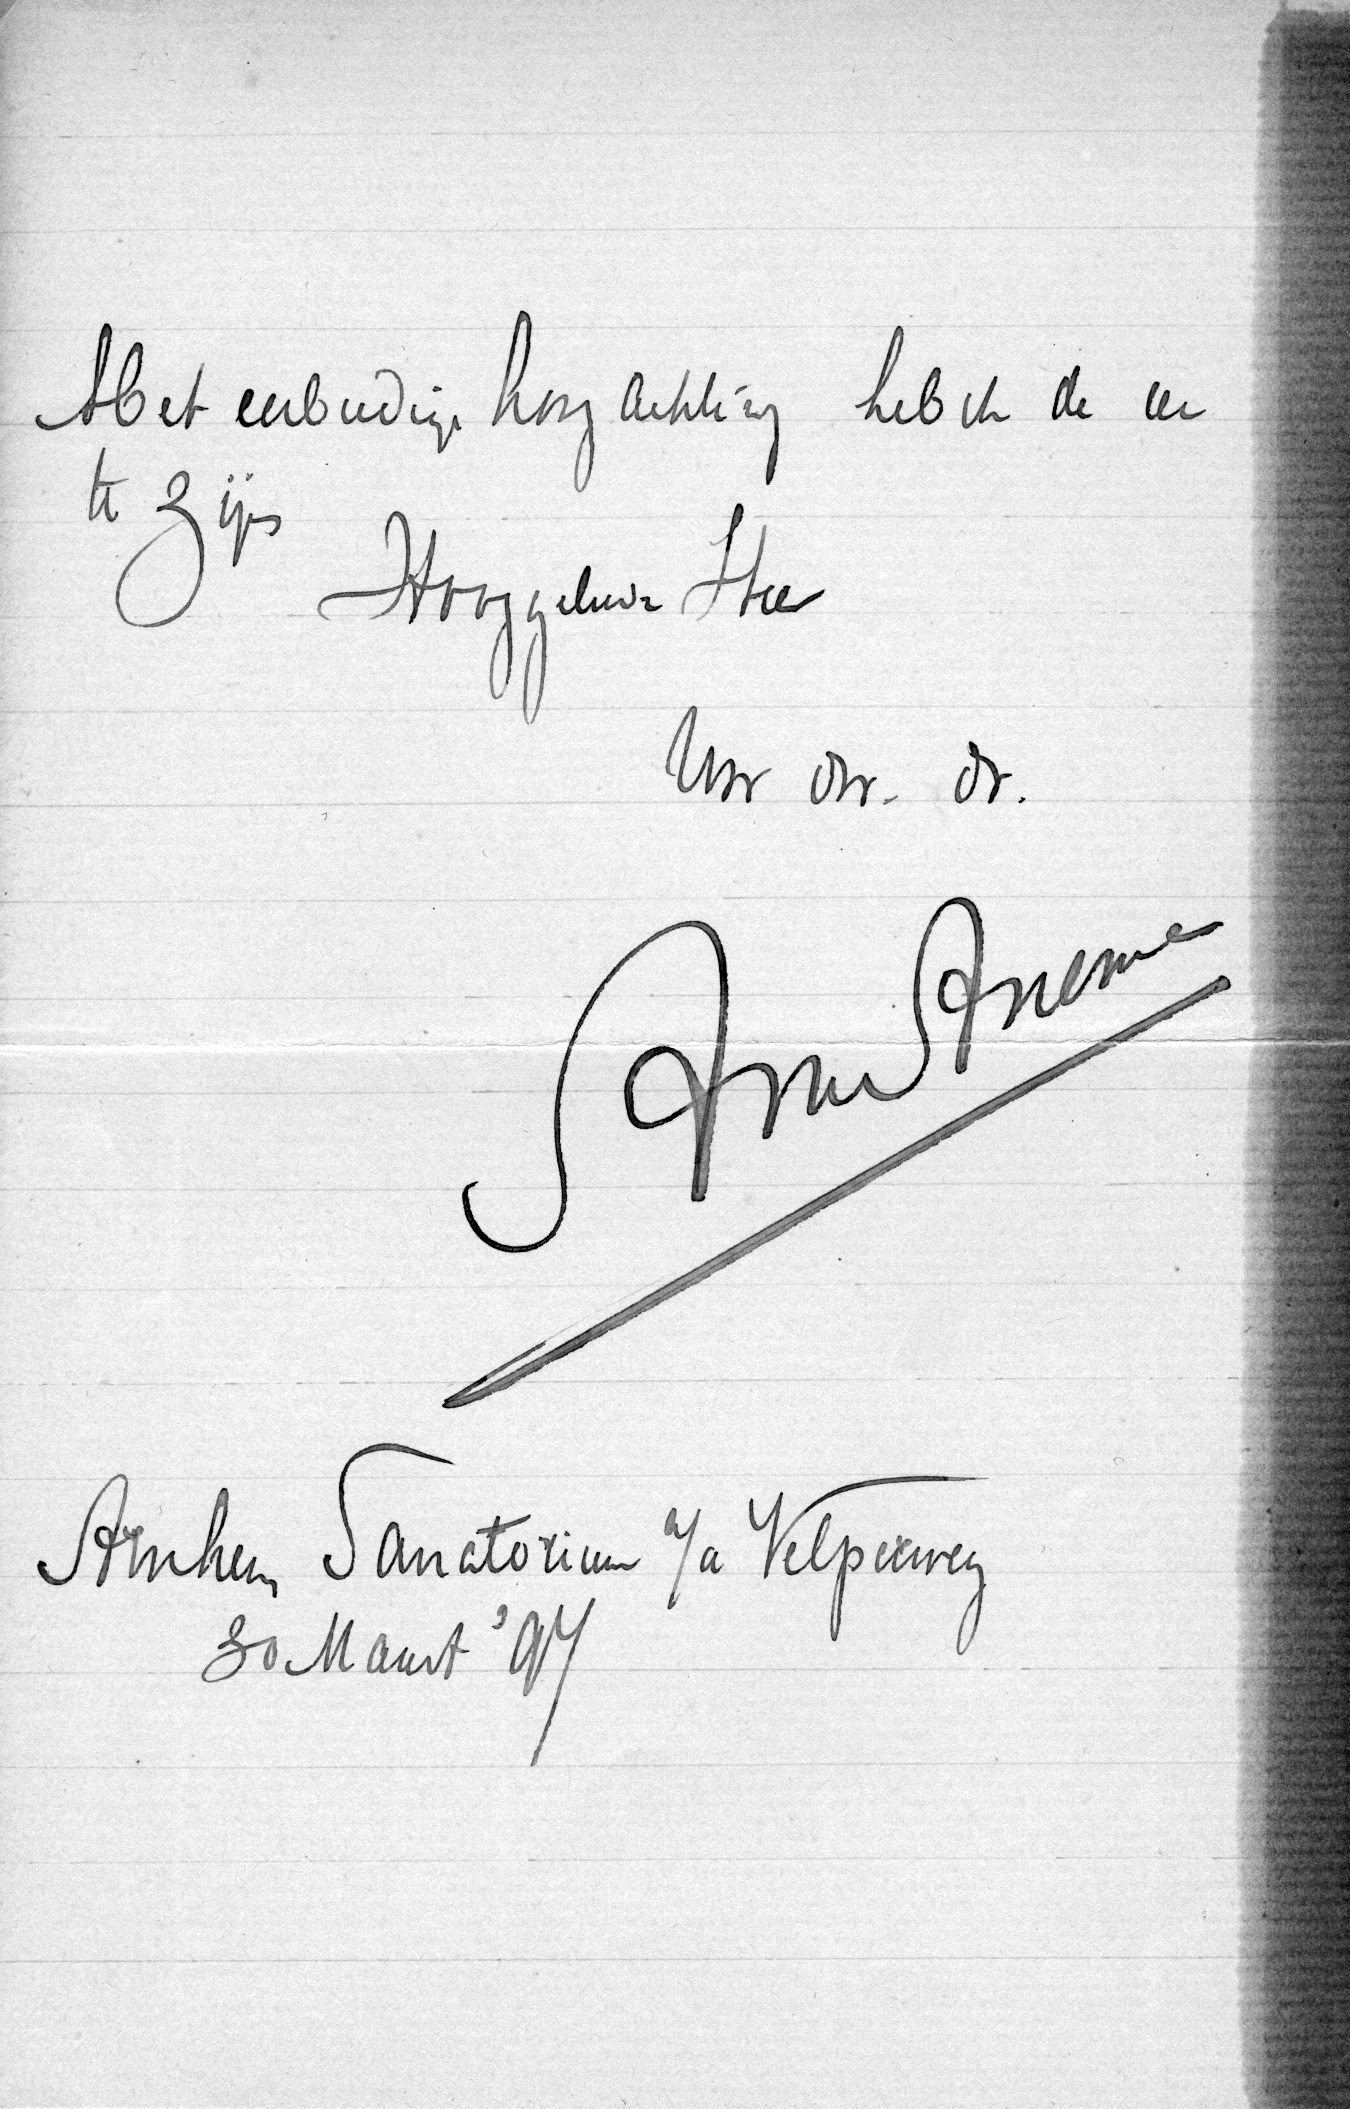 Met eerbiedige hoogachting heb ik de eer
te zijn
Hooggeleerde Heer
Uw dw. dr.
Arnhem, Sanatorium a/a Velperweg
30 Maart '97